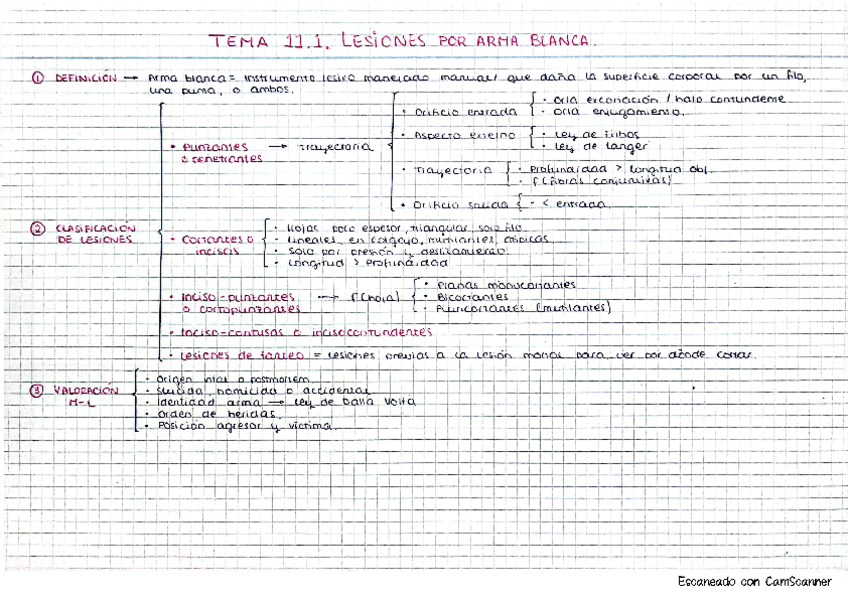 TEMA 11.1. LESIONES POR ARMA BLANCA.
① DEFINICIÓN → Arma blanca = instrumento lesivo manejado manual/ que daña la superficie corporal por un filo,
una punta, o ambos.
② CLASIFICACIÓN DE LESIONES
• Punzantes o penetrantes → Trayectoria
• Orificio entrada
• Orla excoriación / halo contundente.
• Orla enjugamiento.
• Aspecto externo
• Ley de Filhos
• Ley de Langer
• Trayectoria
• Profundidad > longitud obj.
• f (horas conjuntivas)
• Orificio salida
• < entrada.
• Cortantes o incisas
• Hojas poco espesor, triangular, solo filo.
• Lineales, en colgajo, mutilantes, atípicas.
• Solo por presión y deslizamiento.
• Longitud > profundidad
• Inciso-punzantes o cortopunzantes → f(hoja)
• Planas monocortantes
• Bicortantes
• Pluricortantes (mutilantes)
• Inciso-contusas o incisocontundentes
• Lesiones de tanteo = lesiones previas a la lesión mortal para ver por dónde cortar.
③ VALORACIÓN M-L
• Origen vital o postmortem
• Suicida, homicida o accidental
• Identidad arma → Ley de Dalla Volta
• Orden de heridas.
• Posición agresor y víctima.
Escaneado con CamScanner